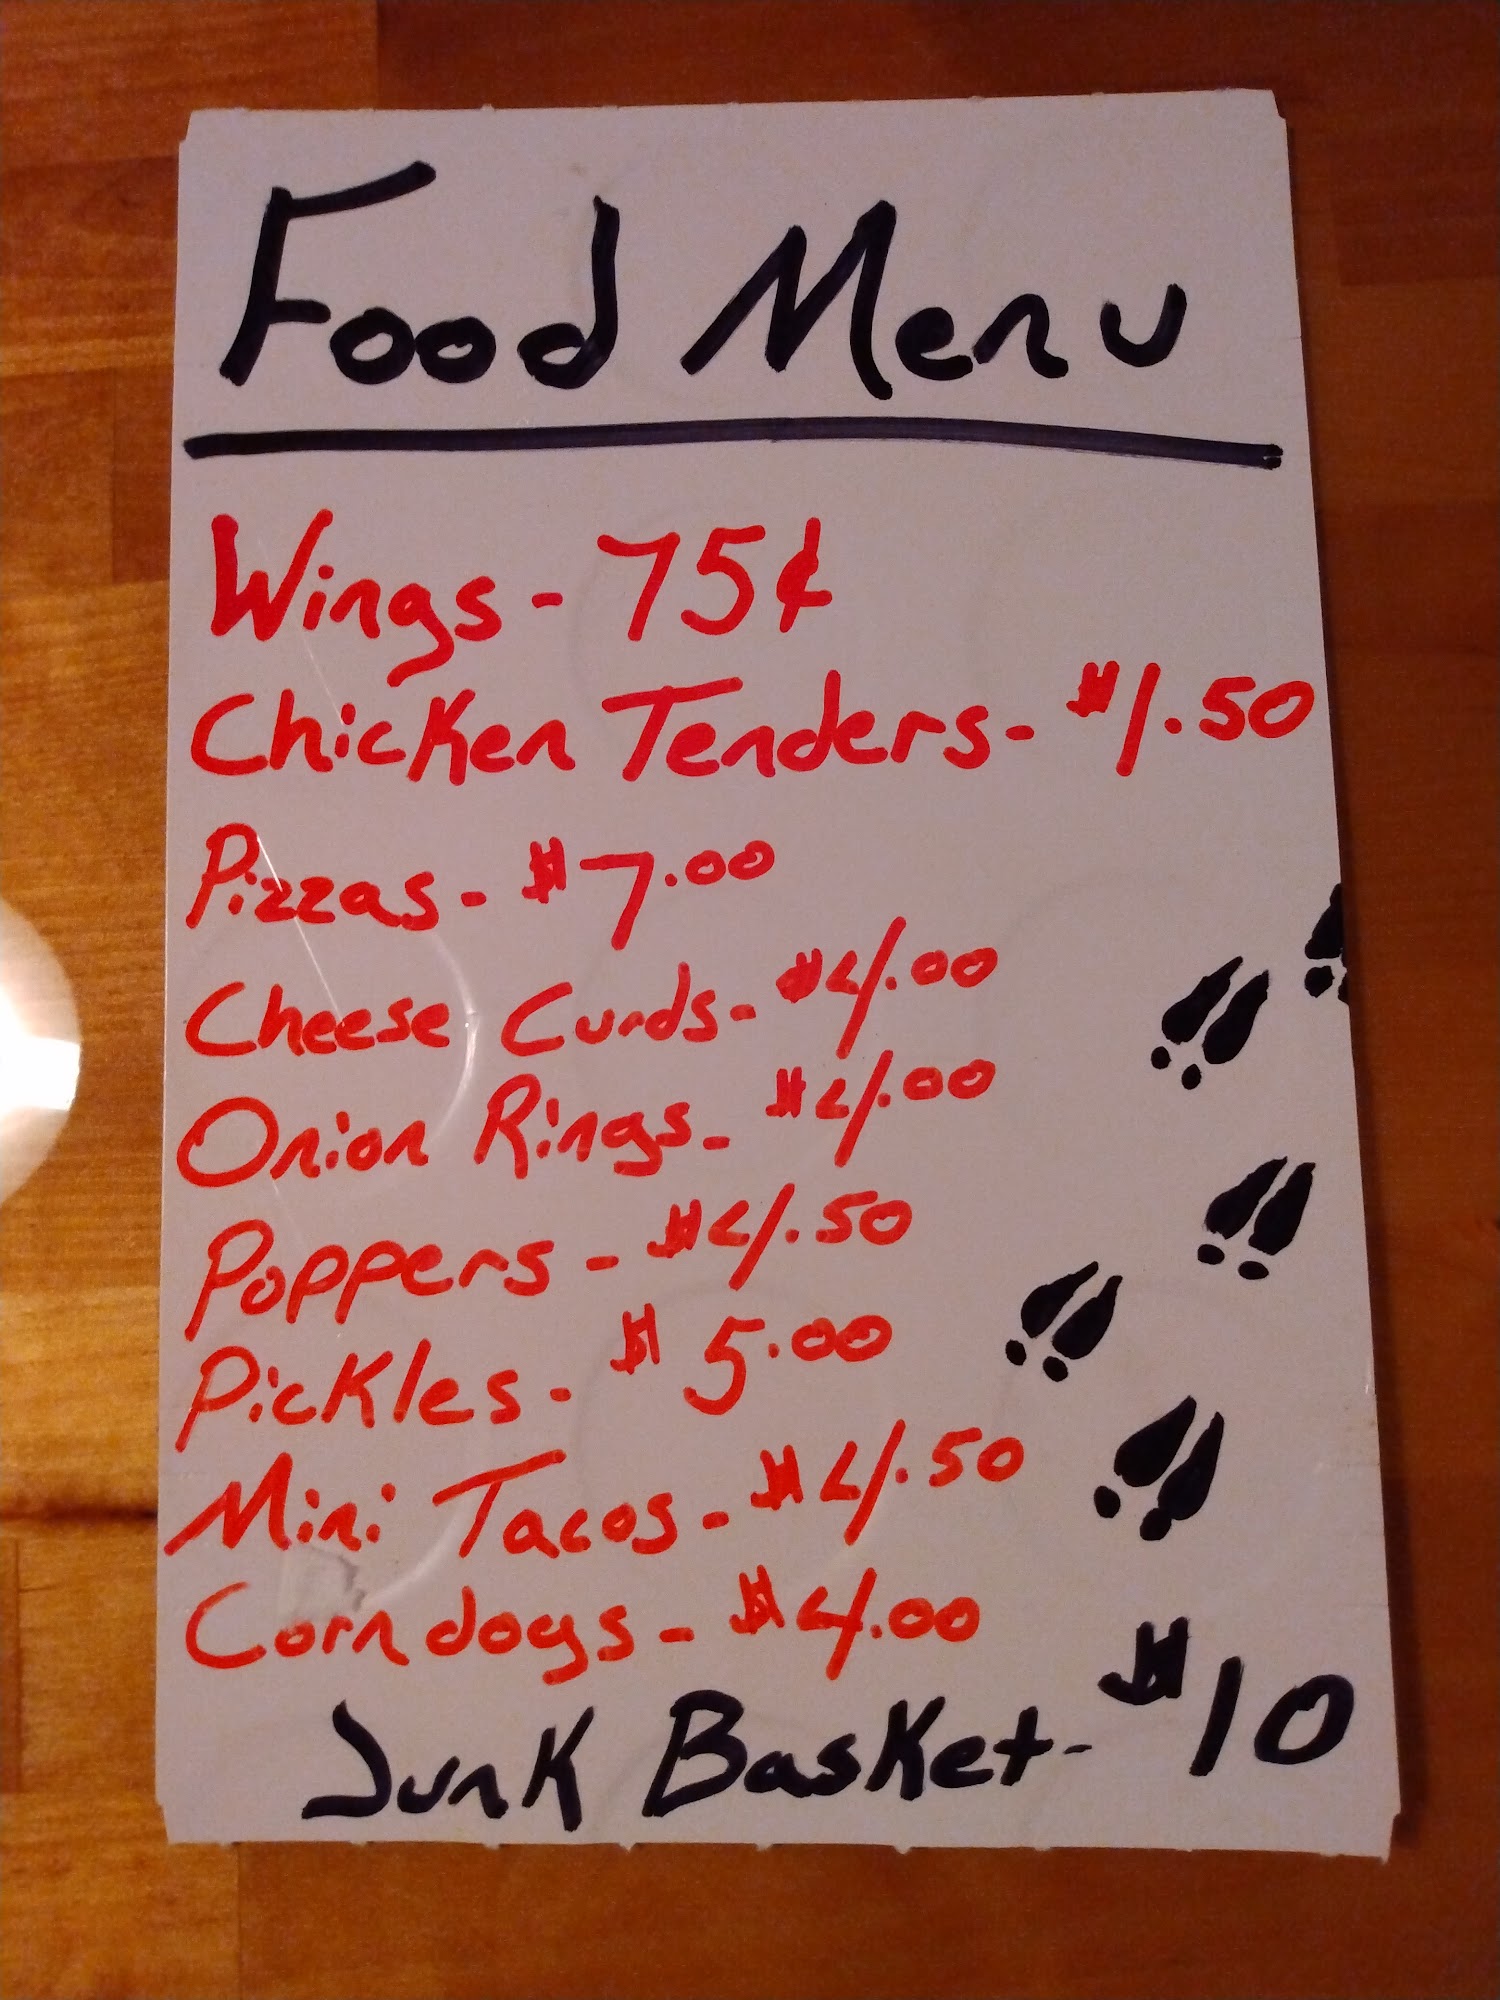 Food Menu
Wings - 75¢
Chicken Tenders - $1.50
Pizzas - $7.00
Cheese Curds - $4.00
Onion Rings - $4.00
Poppers - $4.50
Pickles - $5.00
Mini Tacos - $4.50
Corndogs - $4.00
Junk Basket - $10